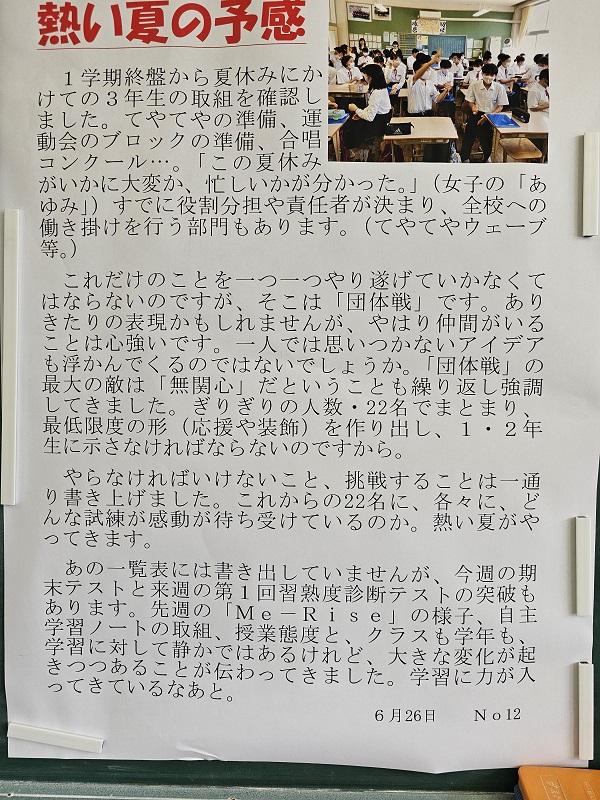 熱い夏の予感
　１学期終盤から夏休みにか
けての３年生の取組を確認し
ました。てやてやの準備、運
動会のブロックの準備、合唱
コンクール…。「この夏休み
がいかに大変か、忙しいかが分かった。」（女子の「あ
ゆみ」）すでに役割分担や責任者が決まり、全校への
働き掛けを行う部門もあります。（てやてやウェーブ
等。）
　これだけのことを一つ一つやり遂げていかなくて
はならないのですが、そこは「団体戦」です。あり
きたりの表現かもしれませんが、やはり仲間がいる
ことは心強いです。一人では思いつかないアイデア
も浮かんでくるのではないでしょうか。「団体戦」の
最大の敵は「無関心」だということも繰り返し強調
してきました。ぎりぎりの人数・22名でまとまり、
最低限度の形（応援や装飾）を作り出し、１・２年
生に示さなければならないのですから。
　やらなければいけないこと、挑戦することは一通
り書き上げました。これからの22名に、各々に、ど
んな試練が感動が待ち受けているのか。熱い夏がや
ってきます。
　あの一覧表には書き出していませんが、今週の期
末テストと来週の第１回習熟度診断テストの突破も
あります。先週の「Ｍｅ－Ｒｉｓｅ」の様子、自主
学習ノートの取組、授業態度と、クラスも学年も、
学習に対して静かではあるけれど、大きな変化が起
きつつあることが伝わってきました。学習に力が入
ってきているなあと。
６月26日　　Ｎｏ12